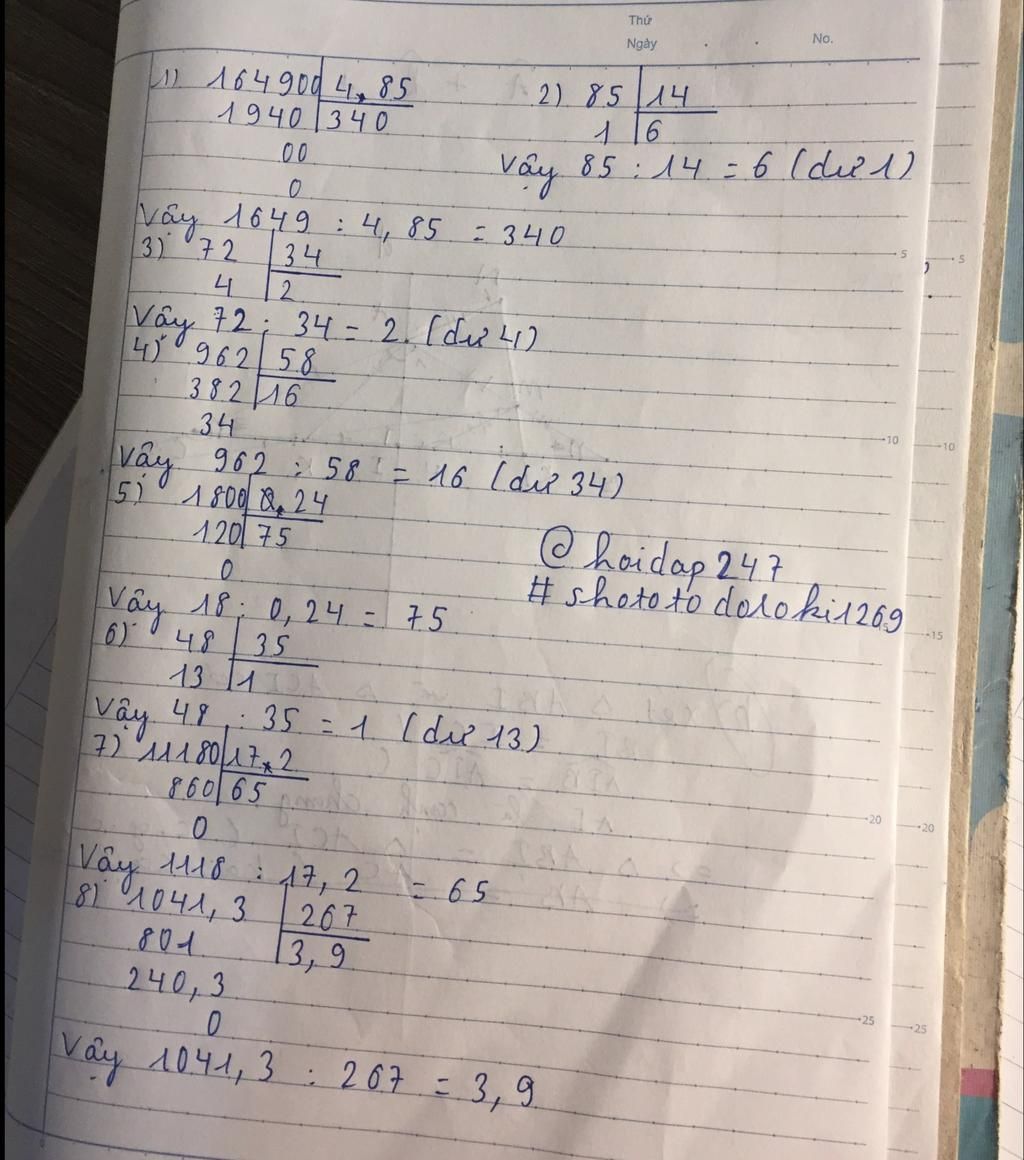 Thứ
Ngày . . No.
1) 164900 4,85
1940 340
00
0
Vậy 1649 : 4,85 = 340
2) 85 14
1 6
Vậy 85 : 14 = 6 (dư 1)
3) 72 34
4 2
Vậy 72 : 34 = 2. (dư 4)
4) 962 58
382 16
34
Vậy 962 : 58 = 16 (dư 34)
5) 1800 0,24
120 75
0
Vậy 18 : 0,24 = 75
@hoidap247
#shototodoroki1269
6) 48 35
13 1
Vậy 48 : 35 = 1 (dư 13)
7) 11180 17,2
860 65
0
Vậy 1118 : 17,2 = 65
8) 1041,3 267
801 3,9
240,3
0
Vậy 1041,3 : 267 = 3,9
5
5
10
10
15
20
20
25
25